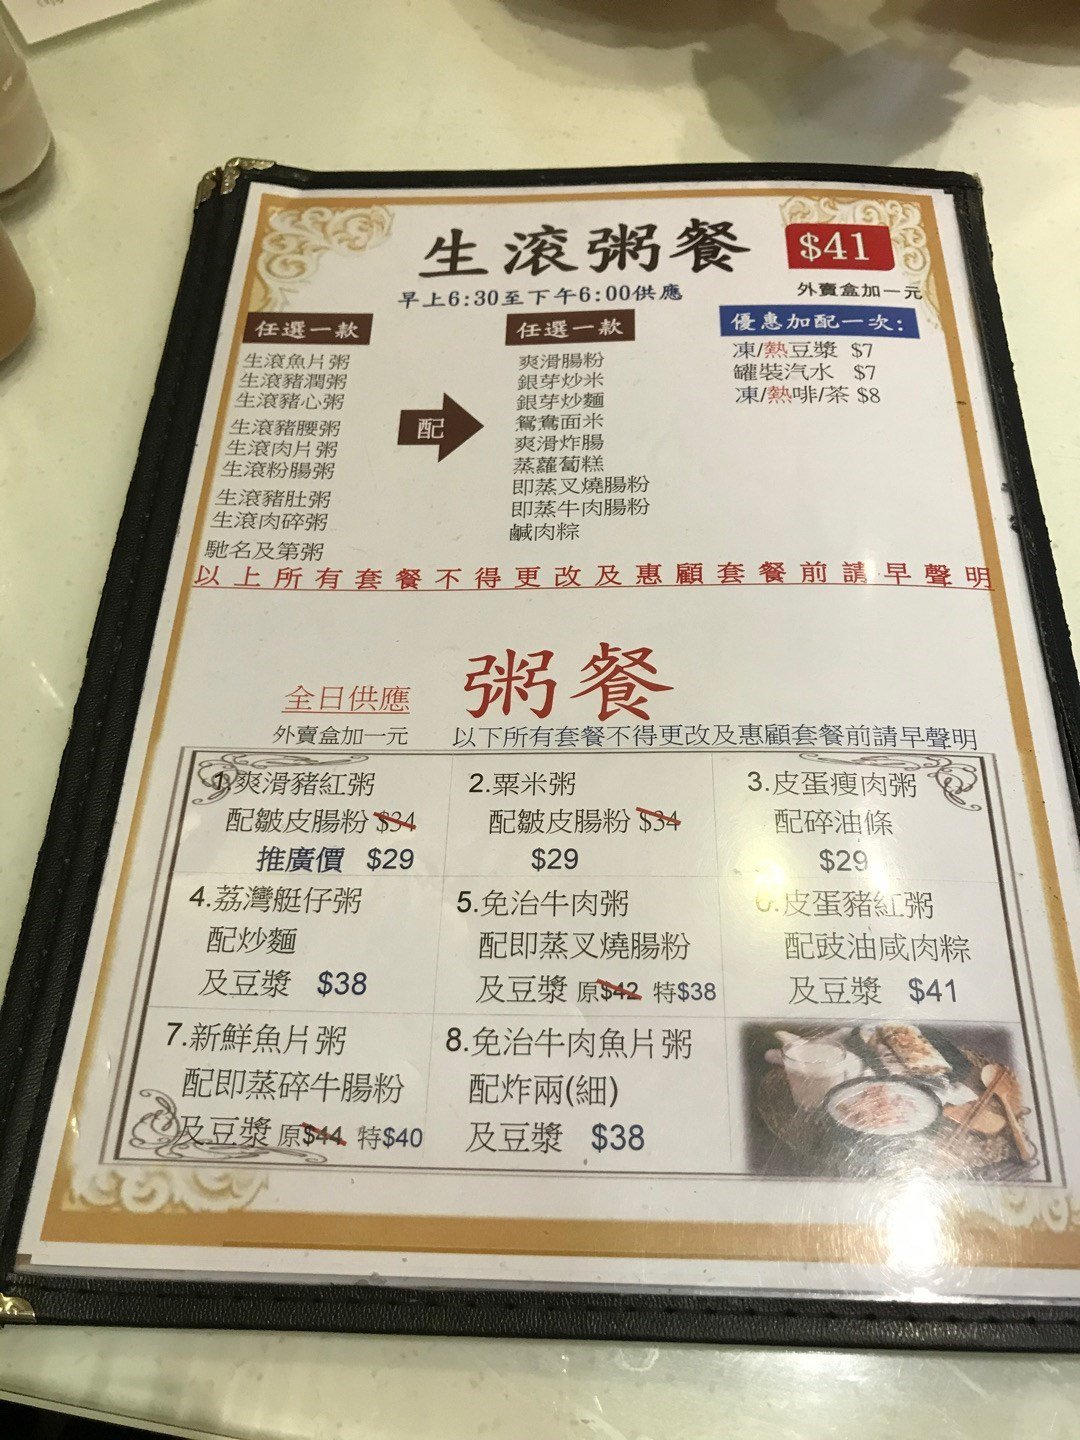 生滾粥餐 $41
早上6:30至下午6:00供應
外賣盒加一元
任選一款
生滾魚片粥
生滾豬潤粥
生滾豬心粥
生滾豬腰粥
生滾肉片粥
生滾粉腸粥
生滾豬肚粥
生滾肉碎粥
馳名及第粥
配
任選一款
爽滑腸粉
銀芽炒米
銀芽炒麵
鴛鴦面米
爽滑炸腸
蒸蘿蔔糕
即蒸叉燒腸粉
即蒸牛肉腸粉
鹹肉粽
優惠加配一次:
凍/熱豆漿 $7
罐裝汽水 $7
凍/熱啡/茶 $8
以上所有套餐不得更改及惠顧套餐前請早聲明
粥餐
全日供應
外賣盒加一元
以下所有套餐不得更改及惠顧套餐前請早聲明
1.爽滑豬紅粥
配皺皮腸粉 $34
推廣價 $29
2.粟米粥
配皺皮腸粉 $34
$29
3.皮蛋瘦肉粥
配碎油條
$29
4.荔灣艇仔粥
配炒麵
及豆漿 $38
5.免治牛肉粥
配即蒸叉燒腸粉
及豆漿 原$42 特$38
6.皮蛋豬紅粥
配豉油咸肉粽
及豆漿 $41
7.新鮮魚片粥
配即蒸碎牛腸粉
及豆漿 原$44 特$40
8.免治牛肉魚片粥
配炸兩(細)
及豆漿 $38